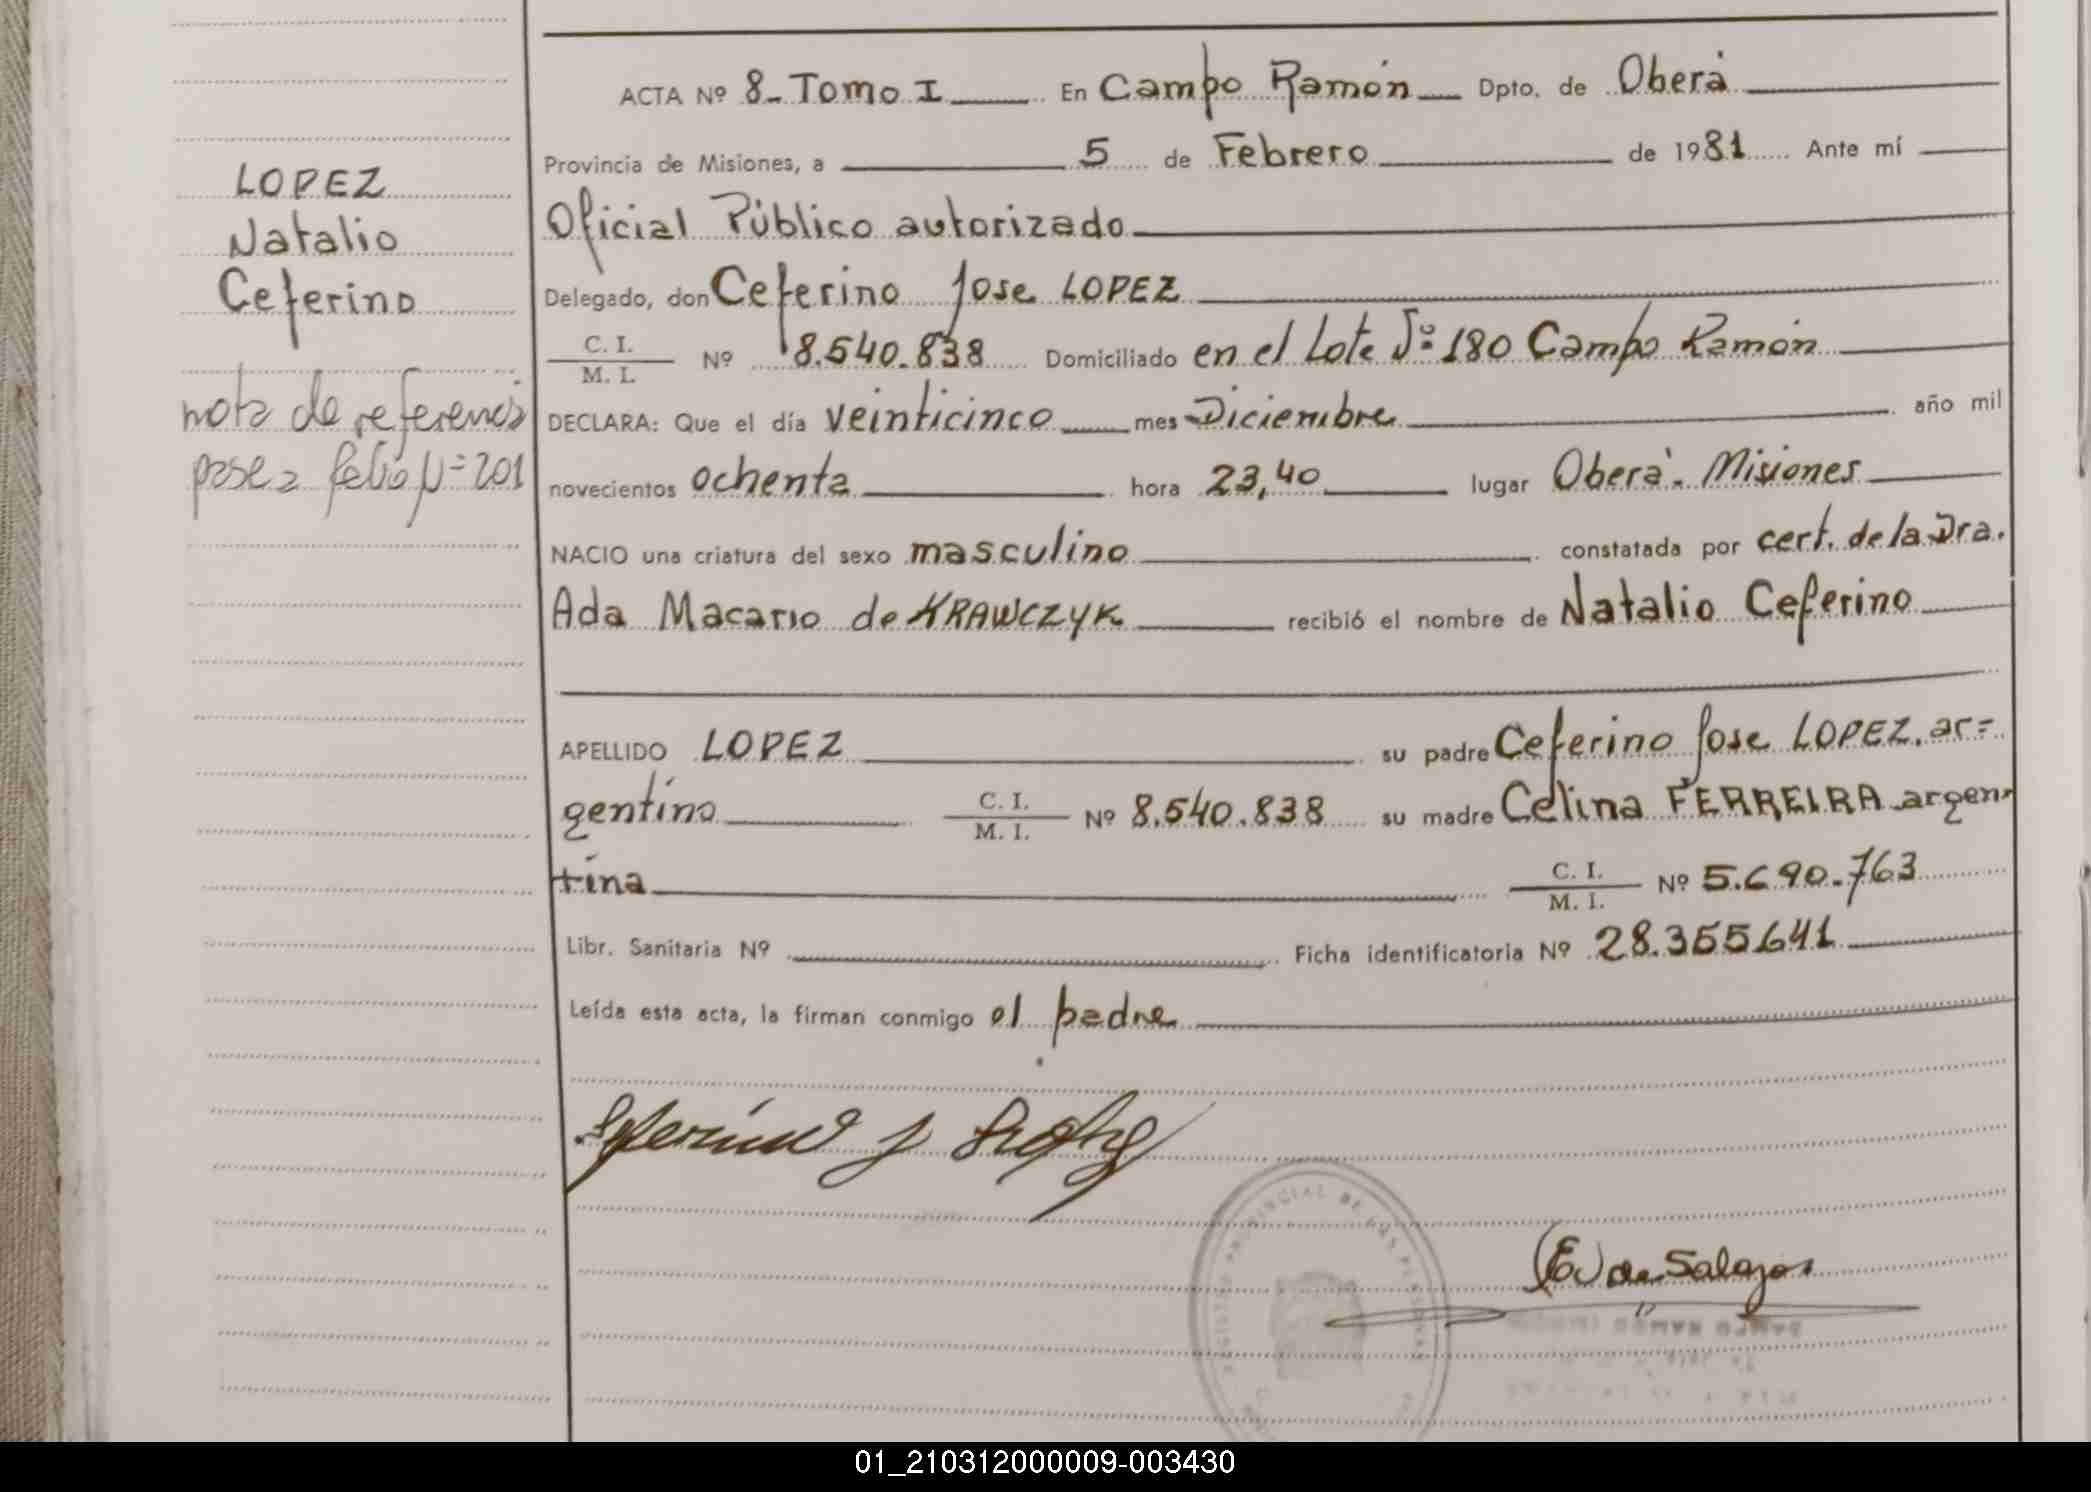 ACTA Nº 8_ Tomo I En Campo Ramón Dpto. de Oberá
Provincia de Misiones, a 5 de Febrero de 1981 Ante mí
Oficial Público autorizado
Delegado, don Ceferino Jose LOPEZ
C. I.
M. I. Nº 8.540.838 Domiciliado en el Lote Nº 180 Campo Ramón
DECLARA: Que el día veinticinco mes Diciembre año mil
novecientos ochenta hora 23,40 lugar Oberá. Misiones
NACIO una criatura del sexo masculino constatada por cert. de la Dra.
Ada Macario de KRAWCZYK recibió el nombre de Natalio Ceferino
APELLIDO LOPEZ su padre Ceferino Jose LOPEZ. ar=
gentino C. I.
M. I. Nº 8.540.838 su madre Celina FERREIRA argen
tina C. I.
M. I. Nº 5.690.763
Libr. Sanitaria Nº Ficha identificatoria Nº 28.355641
Leída esta acta, la firman conmigo el padre
LOPEZ
Natalio
Ceferino
nota de referencia
pase a folio Nº 201
de Salazar
01_210312000009-003430